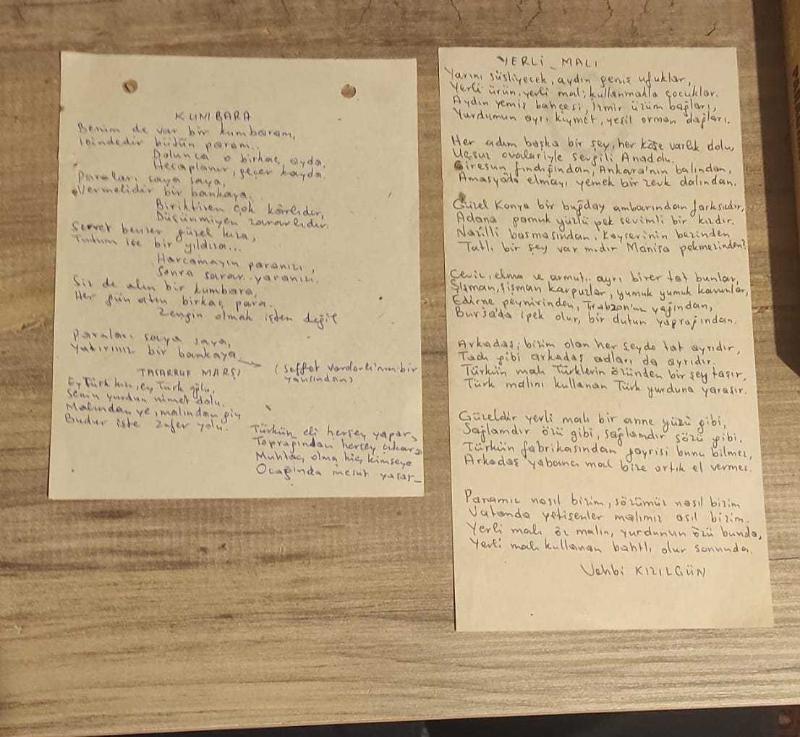 KUMBARA
Benim de var bir kumbaram,
İçindedir bütün param.
Dolunca o birkaç ayda,
Hesaplanır, geçer kayda.
Paraları saya saya,
Vermelidir bir bankaya.
Biriktiren çok kârlıdır,
Düşünmiyen zararlıdır.
Servet benzer güzel kıza,
Tutum ise bir yıldıza...
Harcamayın paranızı,
Sonra sarar yaranızı.
Siz de alın bir kumbara,
Her gün atın birkaç para.
Zengin olmak işten değil
Paraları saya saya,
Yatırınız bir bankaya
(Saffet vardarlı'nın bir
yazısından)
TASARRUF MARŞI
Ey Türk kızı, ey Türk oğlu,
Senin yurdun nimet dolu.
Malından ye, malından giy
Budur işte zafer yolu.
Türkün eli herşey yapar,
Toprağından herşey çıkar
Muhtaç olma hiç kimseye
Ocağında mesut yaşa
YERLİ_MALI
Yarını süsliyecek, aydın geniş ufuklar,
Yerli ürün, yerli mal; kullanmakla çocuklar.
Aydın yemiş bahçesi, İzmir üzüm bağları,
Yurdumun ayrı kıymet, yeşil orman dağları.
Her adım başka bir şey, her köşe varlık dolu,
Uçsuz ovalariyle sevgili Anadolu.
Giresun fındığından, Ankara'nın balından,
Amasyada elmayı yemek bir zevk dalından.
Güzel Konya bir buğday ambarından farksızdır,
Adana pamuk yüzlü pek sevimli bir kızdır.
Nazilli basmasından, Kayserinin bezinden
Tatlı bir şey var mıdır Manisa pekmezinden?
Ceviz, elma ve armut, ayrı birer tat bunlar,
Şişman, şişman karpuzlar, yumuk yumuk kavunlar,
Edirne peynirinden, Trabzon'un yağından,
Bursa'da ipek olur, bir dutun yaprağından.
Arkadaş; bizim olan her şeyde tat ayrıdır,
Tadı gibi arkadaş adları da ayrıdır.
Türkün malı Türklerin özünden bir şey taşır,
Türk malını kullanan Türk yurduna yaraşır.
Güzeldir yerli malı bir anne yüzü gibi,
Sağlamdır özü gibi, sağlamdır sözü gibi.
Türkün fabrikasından gayrisi bunu bilmez,
Arkadaş yabancı mal bize artık el vermez.
Paramız nasıl bizim, sözümüz nasıl bizim
Vatanda yetişenler malımız asıl bizim.
Yerli malı öz malın, yurdunun özü bunda,
Yerli malı kullanan bahtlı olur sonunda.
Vehbi KIZILGÜN